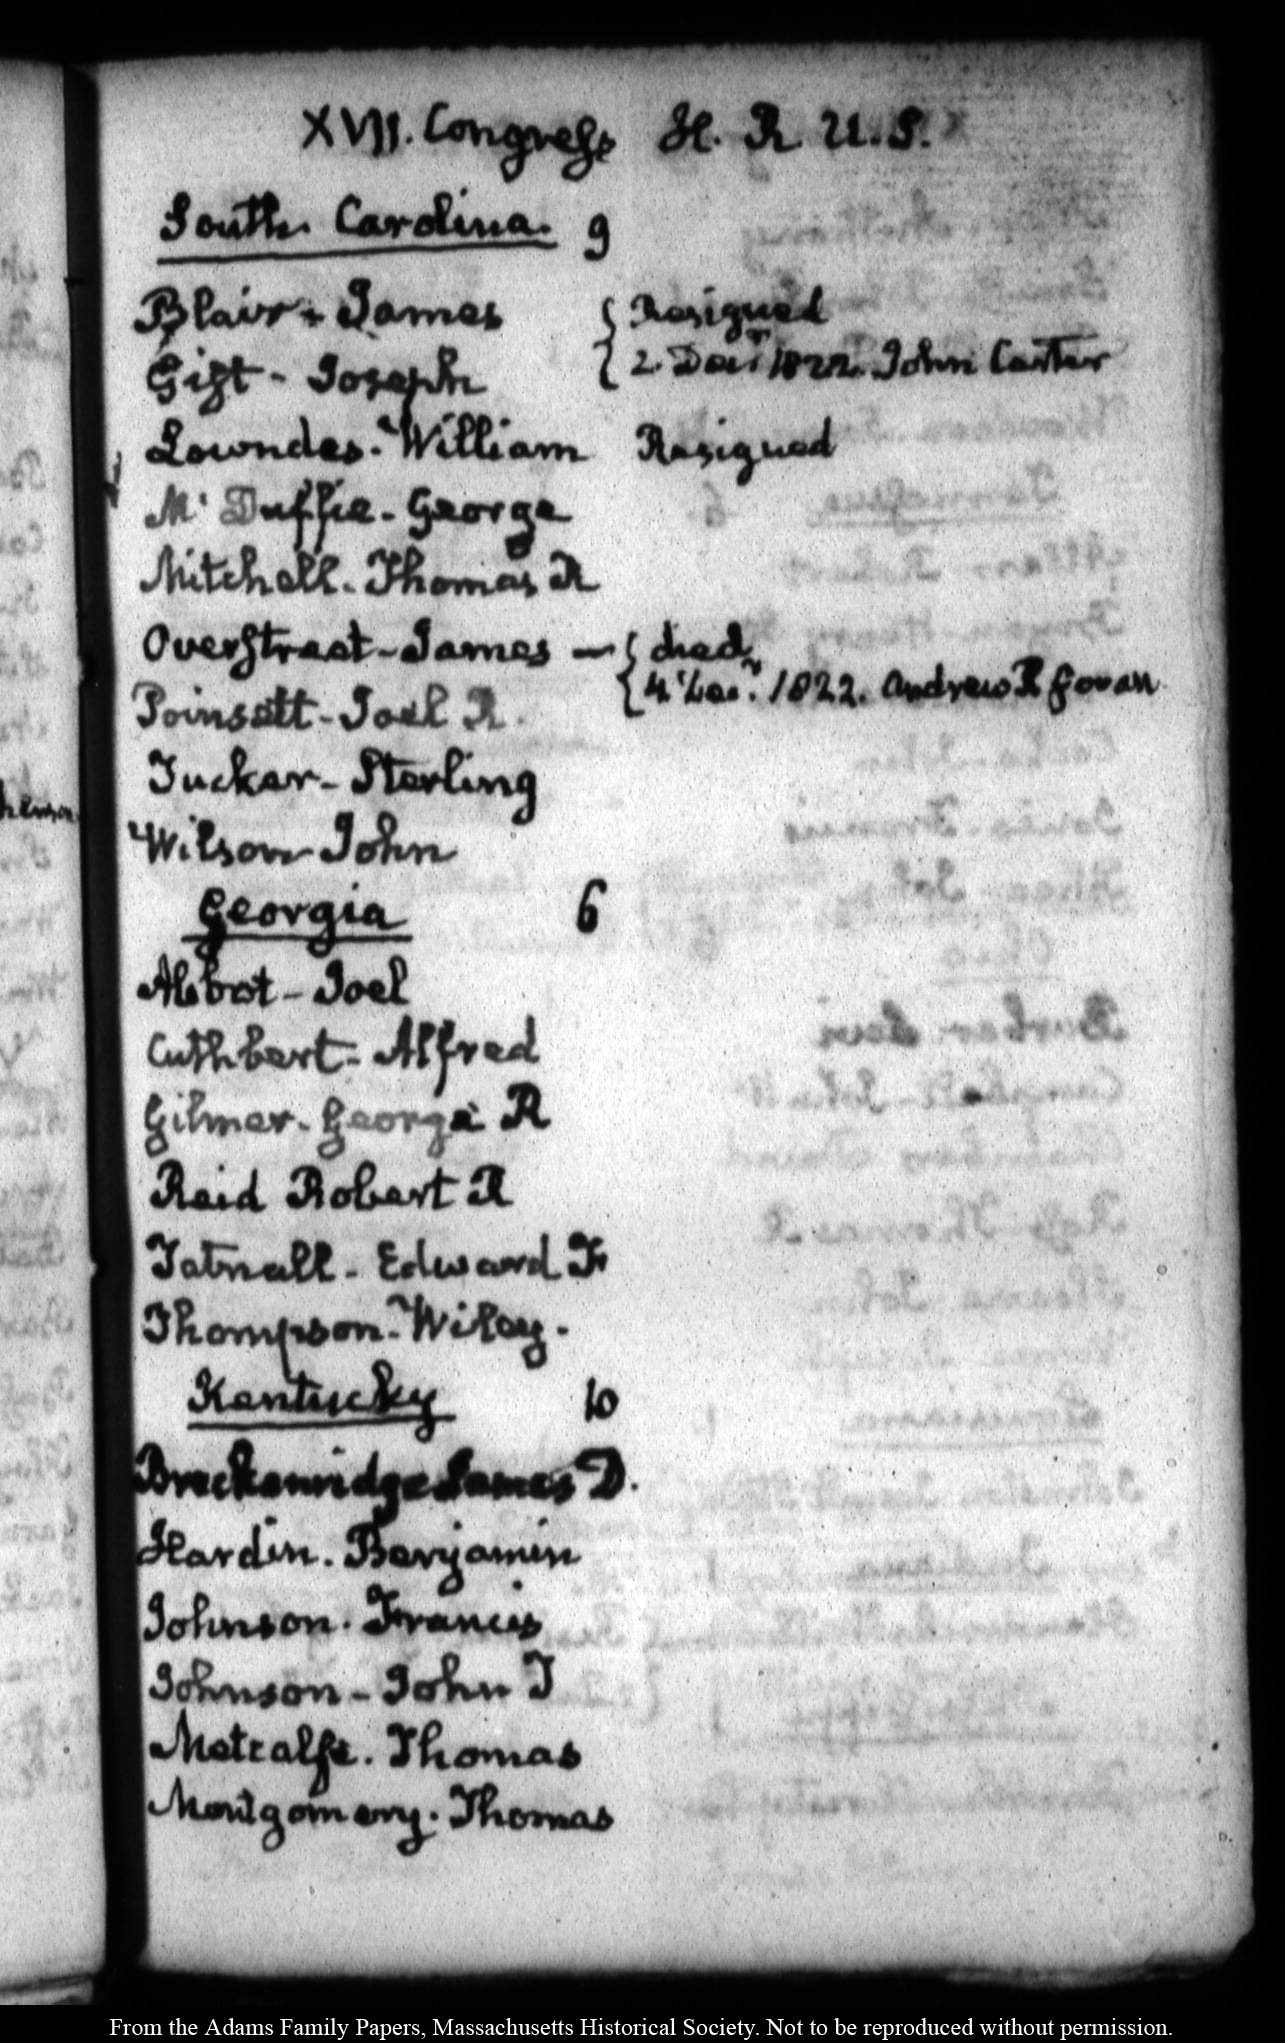 XVII. Congress H. R. U.S.
South Carolina. 9
Blair - James { Resigned
Gist - Joseph { 2. Decr 1822. John Carter
Lowndes. William Resigned
Mc Duffie - George
Mitchell. Thomas R
Overstreet - James — { died
Poinsett - Joel R. { 4 Decr. 1822. Andrew R Govan
Tucker - Sterling
Wilson - John
Georgia 6
Abbot - Joel
Cuthbert - Alfred
Gilmer - George R
Reid Robert R
Tatnall - Edward F
Thompson - Wiley.
Kentucky 10
Breckenridge James D.
Hardin. Benjamin
Johnson. Francis
Johnson - John T
Metcalfe. Thomas
Montgomery. Thomas
From the Adams Family Papers, Massachusetts Historical Society. Not to be reproduced without permission.